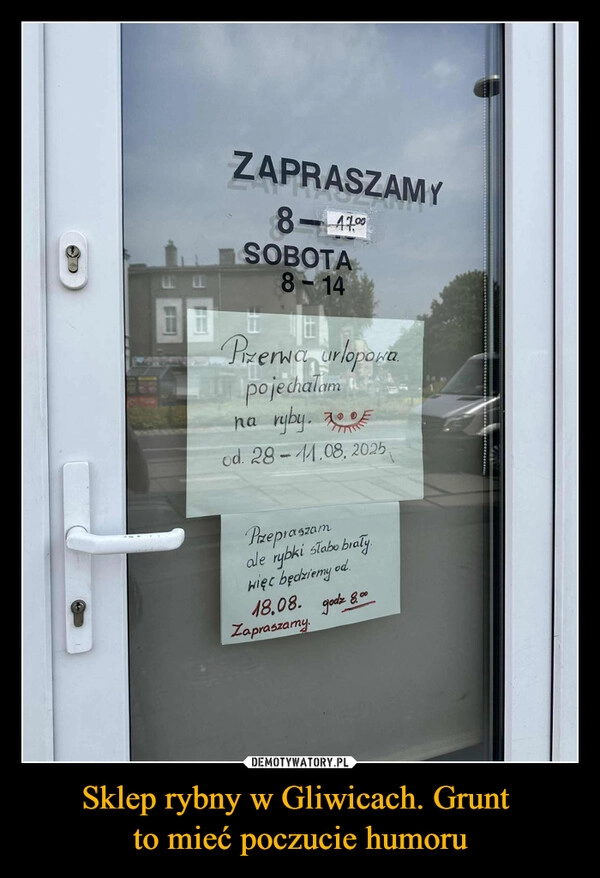 ZAPRASZAMY
8 - 17.00
SOBOTA
8 - 14
Przerwa urlopowa
pojechałam
na ryby.
od. 28 - 11.08.2025
Przepraszam
ale rybki słabo brały.
więc będziemy od.
18.08. godz 8.00
Zapraszamy.
DEMOTYWATORY.PL
Sklep rybny w Gliwicach. Grunt
to mieć poczucie humoru